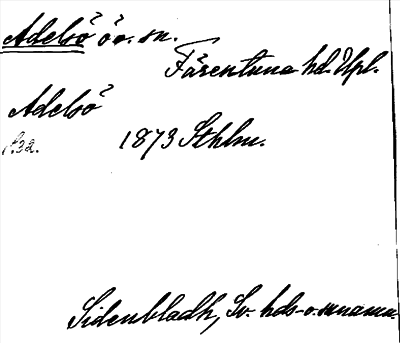 Adelsö ö o. sn.
Färentuna hd. Upl.
Adelsö
s. 32.
1873 Sthlm.
Sidenbladh, Sv. hds- o. snnamn.